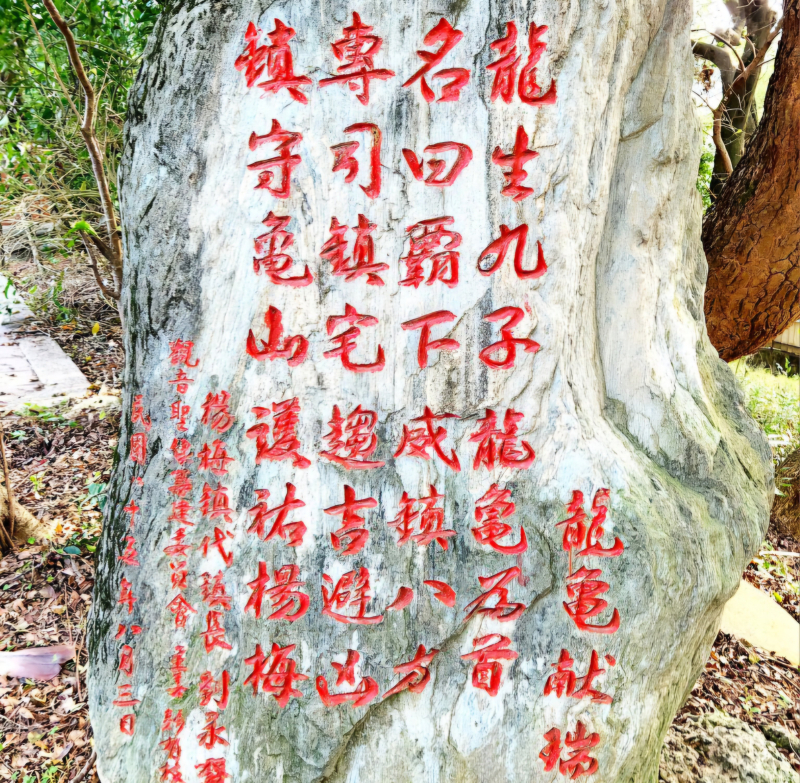 龍龜献瑞
龍生九子龍龜為首
名曰霸下威鎮八方
專司鎮宅趨吉避凶
鎮守龜山護祐楊梅
楊梅鎮代鎮長劉永
觀音聖像籌建委員會主委彭有
民國八十五年八月三日